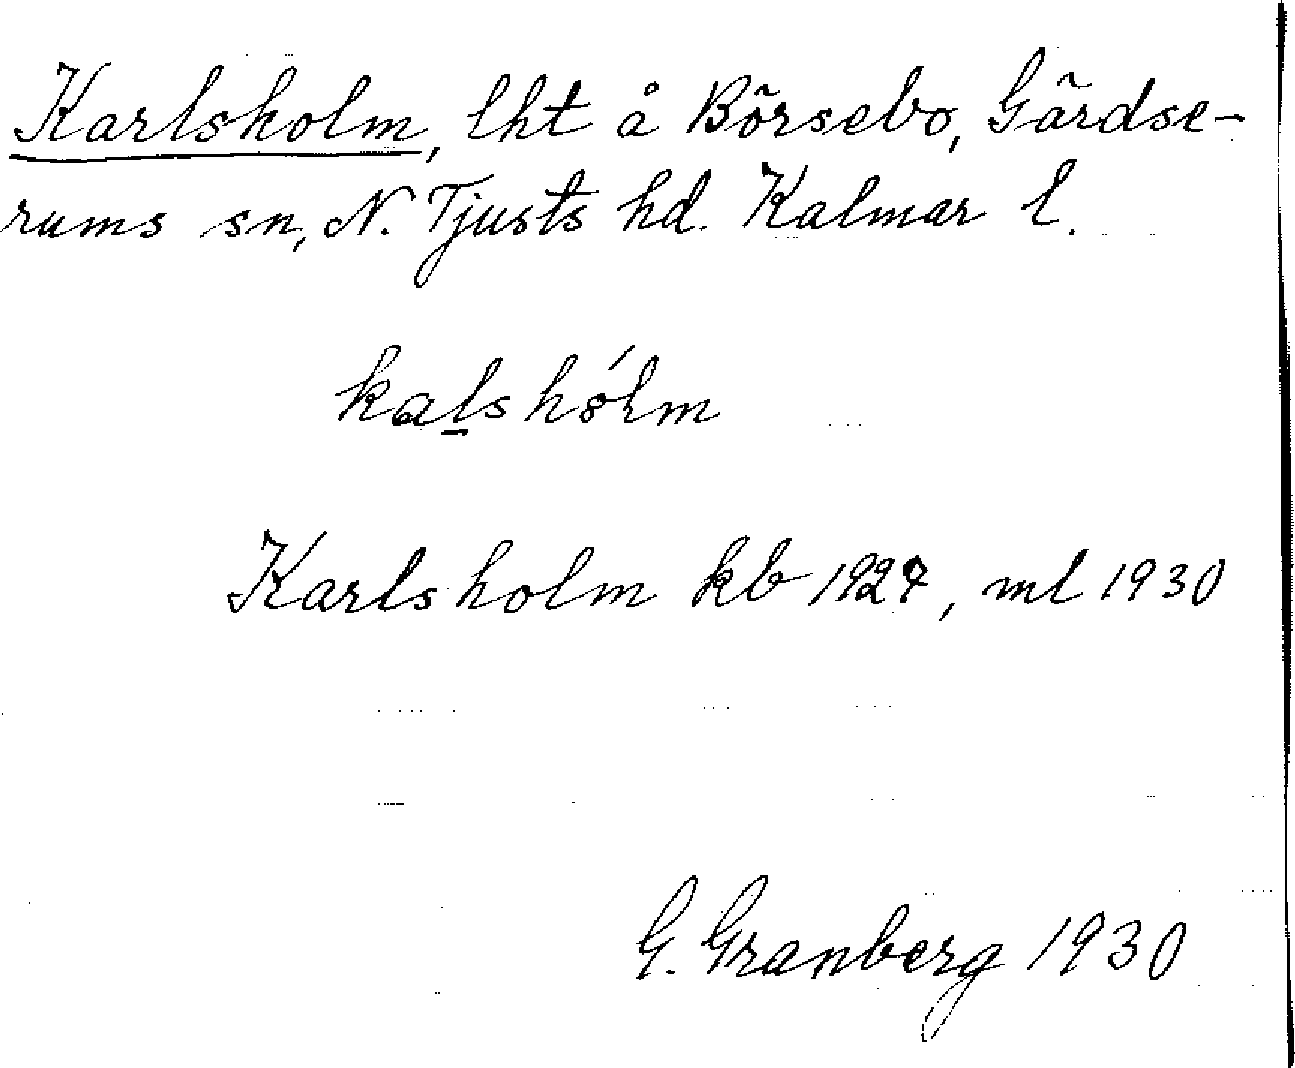 Karlsholm, lht å Börsebo, Gärdse-
rums sn, N. Tjusts hd. Kalmar l.
kalshólm
Karlsholm kb 1927, ml 1930
G. Granberg 1930